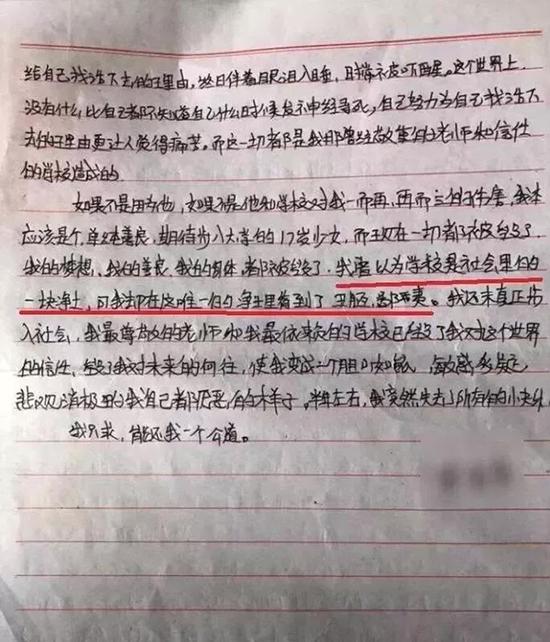 给自己找活下去的理由,终日伴着眼泪入睡,时常示皮吓醒。这个世界上
没有什么比自己都不知道自己什么时候发神经寻死,自己努力为自己找活下
去的理由更让人觉得痛苦。而这一切都是我那曾经敬重的老师和信任
的学校造成的
如果不是因为他,如果不是他和学校对我一而再,再而三的伤害,我本
应该是个单纯善良,期待步入大学的17岁少女,而现在一切都被毁了
我的梦想、我的善良、我的身体,都被毁了,我以为学校是社会里的
一块净土,可我却在这唯一的净土里看到了丑陋,恶。我还未真正步
入社会,我最尊敬的老师和我最依赖的学校已经毁了我对这个世界
的信任,毁了我对未来的向往,使我变成一个胆小如鼠,敏感多疑,
悲观消极的我自己都厌恶的样子。半年左右,我突然失去了所有的小
我只求,能还我一个公道。